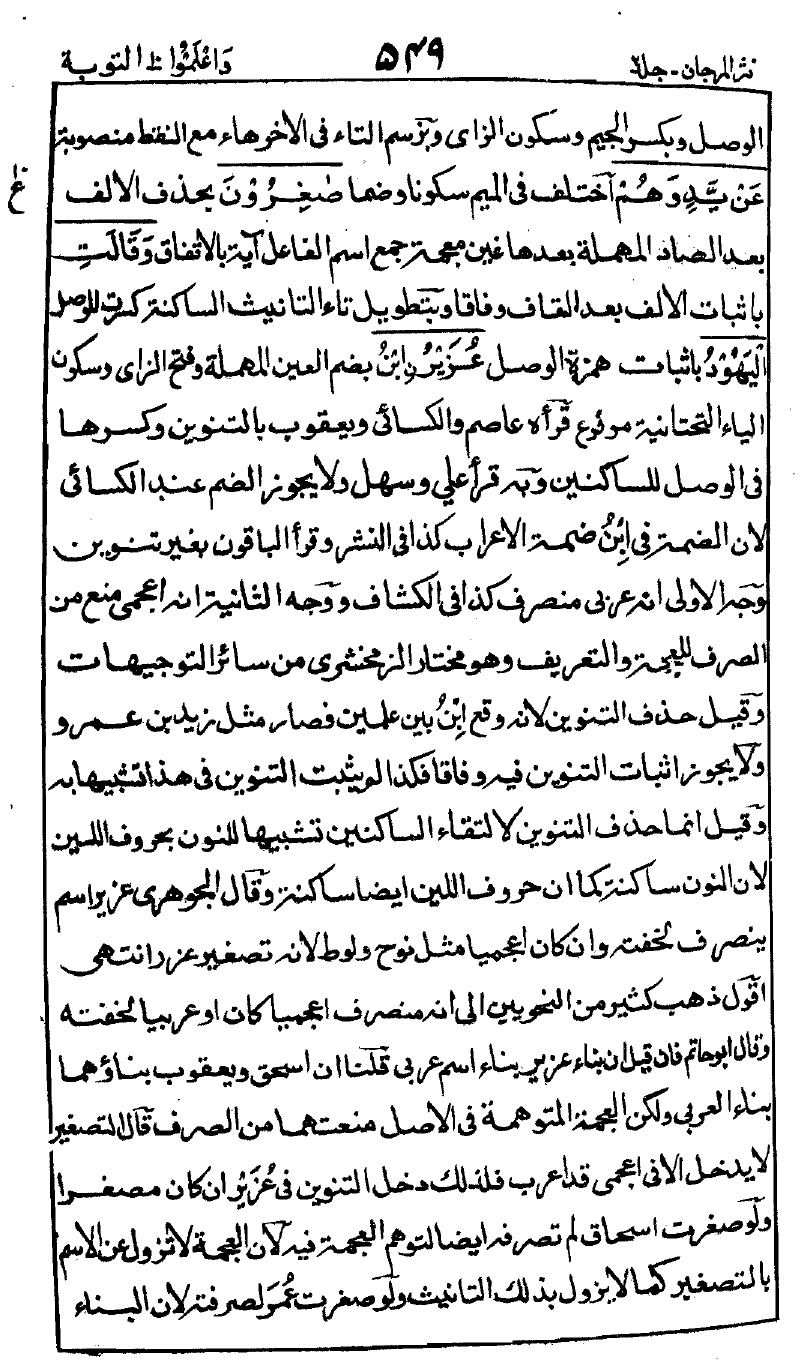 نثر المرجان - جلد ٢
٥٤٩
وَاعْلَمُوْا ١٠ التوبة
الوصل وبكسر الجيم وسكون الزاى وبرسم التاء فى الاخر هاء مع النقط منصوبة
عَنْ يَّدٍ وَّهُمْ اختلف فى الميم سكونا وضما صٰغِرُوْنَ بحذف الالف
ع
بعد الصاد المهملة بعدها غين معجمة جمع اسم الفاعل آية بالاتفاق وَقَالَتِ
باثبات الالف بعد القاف وفاقا وبتطويل تاء التانيث الساكنة كسرت للوصل
الْيَهُوْدُ باثبات همزة الوصل عُزَيْرُنِ ابْنُ بضم العين المهملة وفتح الزاى وسكون
الياء التحتانية مرفوع قرأه عاصم والكسائى ويعقوب بالتنوين وكسرها
فى الوصل للساكنين وبه قرأ علي وسهل ولا يجوز الضم عند الكسائى
لان الضمة فى ابْنُ ضمة الاعراب كذا فى النشر وقرأ الباقون بغير تنوين
وجه الاولى انه عربى منصرف كذا فى الكشاف ووجه الثانية انه اعجمى منع من
الصرف للعجمة والتعريف وهو مختار الزمخشرى من سائر التوجيهات
وقيل حذف التنوين لانه وقع ابْنُ بين علمين فصار مثل زيد بن عمرو
ولا يجوز اثبات التنوين فيه وفاقا فكذا لو يثبت التنوين فى هذا تشبيها به
وقيل انما حذف التنوين لالتقاء الساكنين تشبيها للنون بحروف اللين
لان النون ساكنة كما ان حروف اللين ايضا ساكنة وقال الجوهرى عزير اسم
ينصرف لخفته وان كان اعجميا مثل نوح ولوط لانه تصغير عزر انتهى
اقول ذهب كثير من النحويين الى انه منصرف اعجميا كان او عربيا لخفته
وقال ابو حاتم فان قيل ان بناء عزير بناء اسم عربى قلنا ان اسحق ويعقوب بناؤهما
بناء العربى ولكن العجمة المتوهمة فى الاصل منعتهما من الصرف قال التصغير
لا يدخل الا فى اعجمى قد اعرب فلذلك دخل التنوين فى عُزَيْرُ ان كان مصغرا
ولو صغرت اسحاق لم تصرفه ايضا لتوهم العجمة فيه لان العجمة لا تزول عن الاسم
بالتصغير كما لا يزول بذلك التانيث ولو صغرت عُمَر لصرفته لان البناء